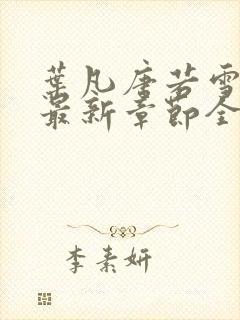 葉凡唐若雪
最新章節全
李素妍